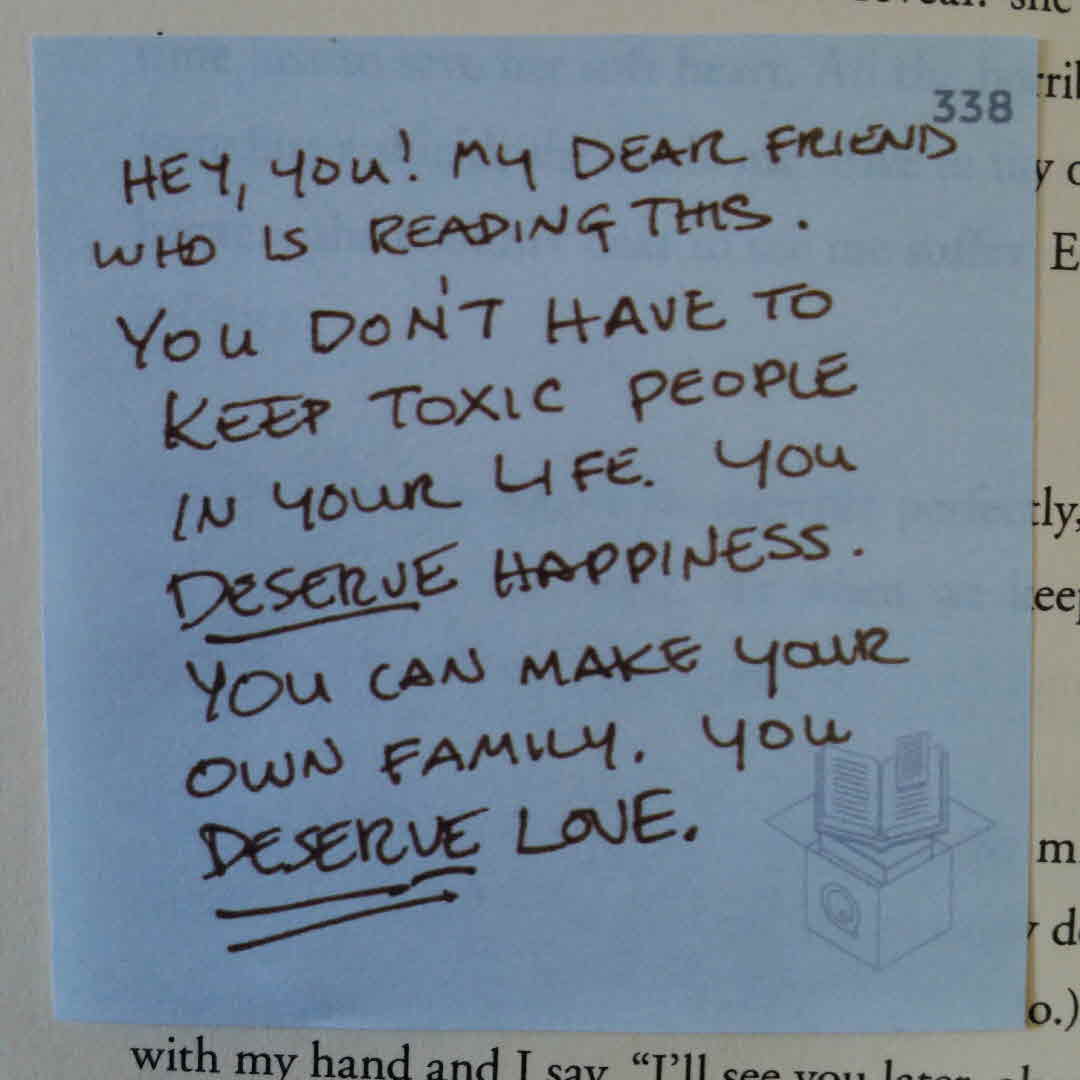 338
HEY, YOU! MY DEAR FRIEND
WHO IS READING THIS.
YOU DON'T HAVE TO
KEEP TOXIC PEOPLE
IN YOUR LIFE. YOU
DESERVE HAPPINESS.
YOU CAN MAKE YOUR
OWN FAMILY. YOU
DESERVE LOVE.
y
E
m
o.)
with my hand and I say, "I'll see you later,